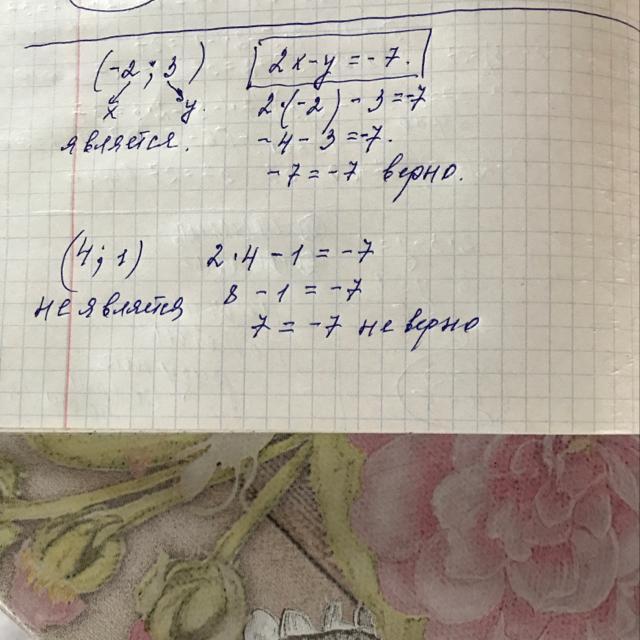 (-2; 3) 2x-y=-7.
x y. 2·(-2)-3=-7
является. -4-3=-7.
-7=-7 верно.
(4; 1) 2·4-1=-7
не является 8-1=-7
7=-7 не верно